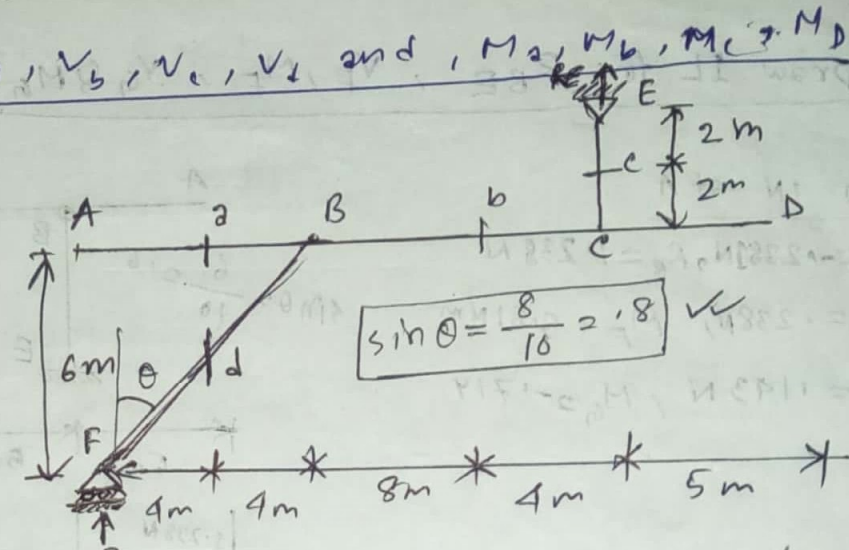 , V_b, V_c, V_d and, M_a, M_b, M_c, M_D
RE E
2m
c
2m
A a B b D
C
sin θ = 8/10 = .8
6m θ d
F
4m 4m 8m 4m 5m